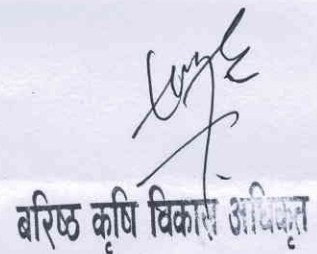 बरिष्ठ कृषि विकास अधिकृत